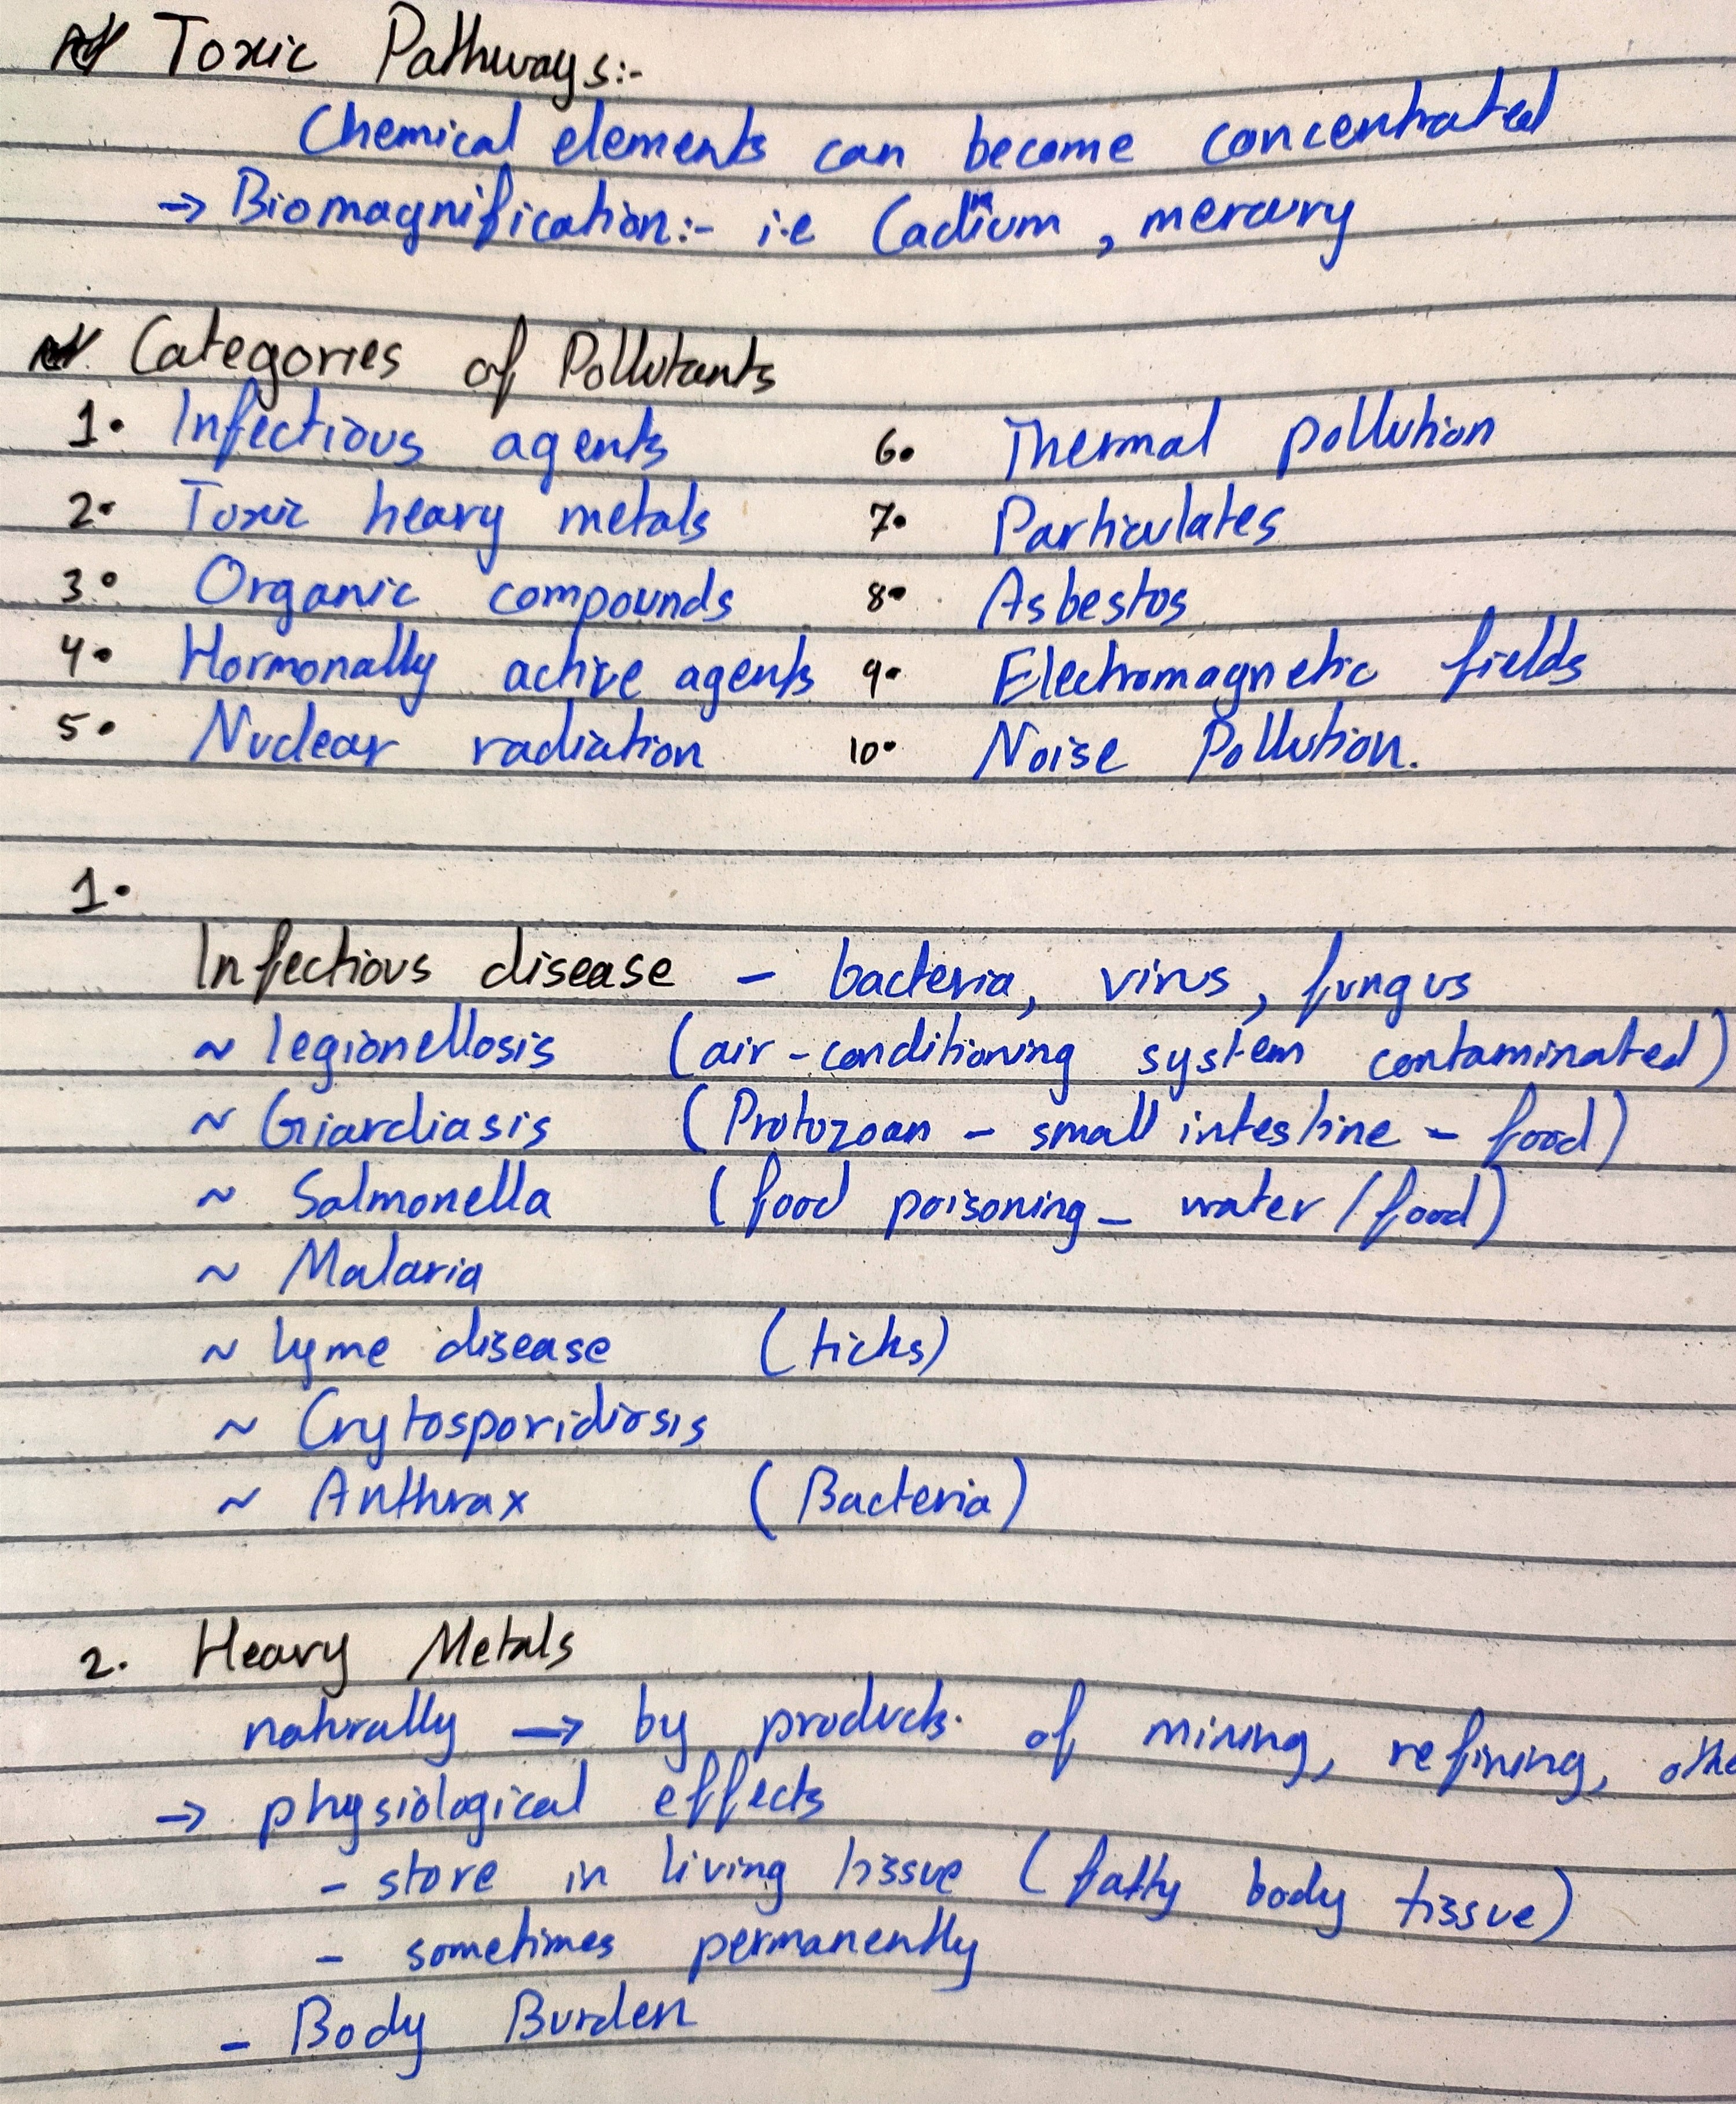 Toxic Pathways:-
Chemical elements can become concentrated
→ Biomagnification:- i.e Cadmium, mercury
Categories of Pollutants
1. Infectious agents 6. Thermal pollution
2. Toxic heavy metals 7. Particulates
3. Organic compounds 8. Asbestos
4. Hormonally active agents 9. Electromagnetic fields
5. Nuclear radiation 10. Noise Pollution.
1.
Infectious disease - bacteria, virus, fungus
~ legionellosis (air-conditioning system contaminated)
~ Giardiasis (Protozoan - small intestine - food)
~ Salmonella (food poisoning - water/food)
~ Malaria
~ Lyme disease (ticks)
~ Crytosporidiosis
~ Anthrax (Bacteria)
2. Heavy Metals
naturally → by products of mining, refining,
→ physiological effects
- store in living tissue (fatty body tissue)
- sometimes permanently
- Body Burden